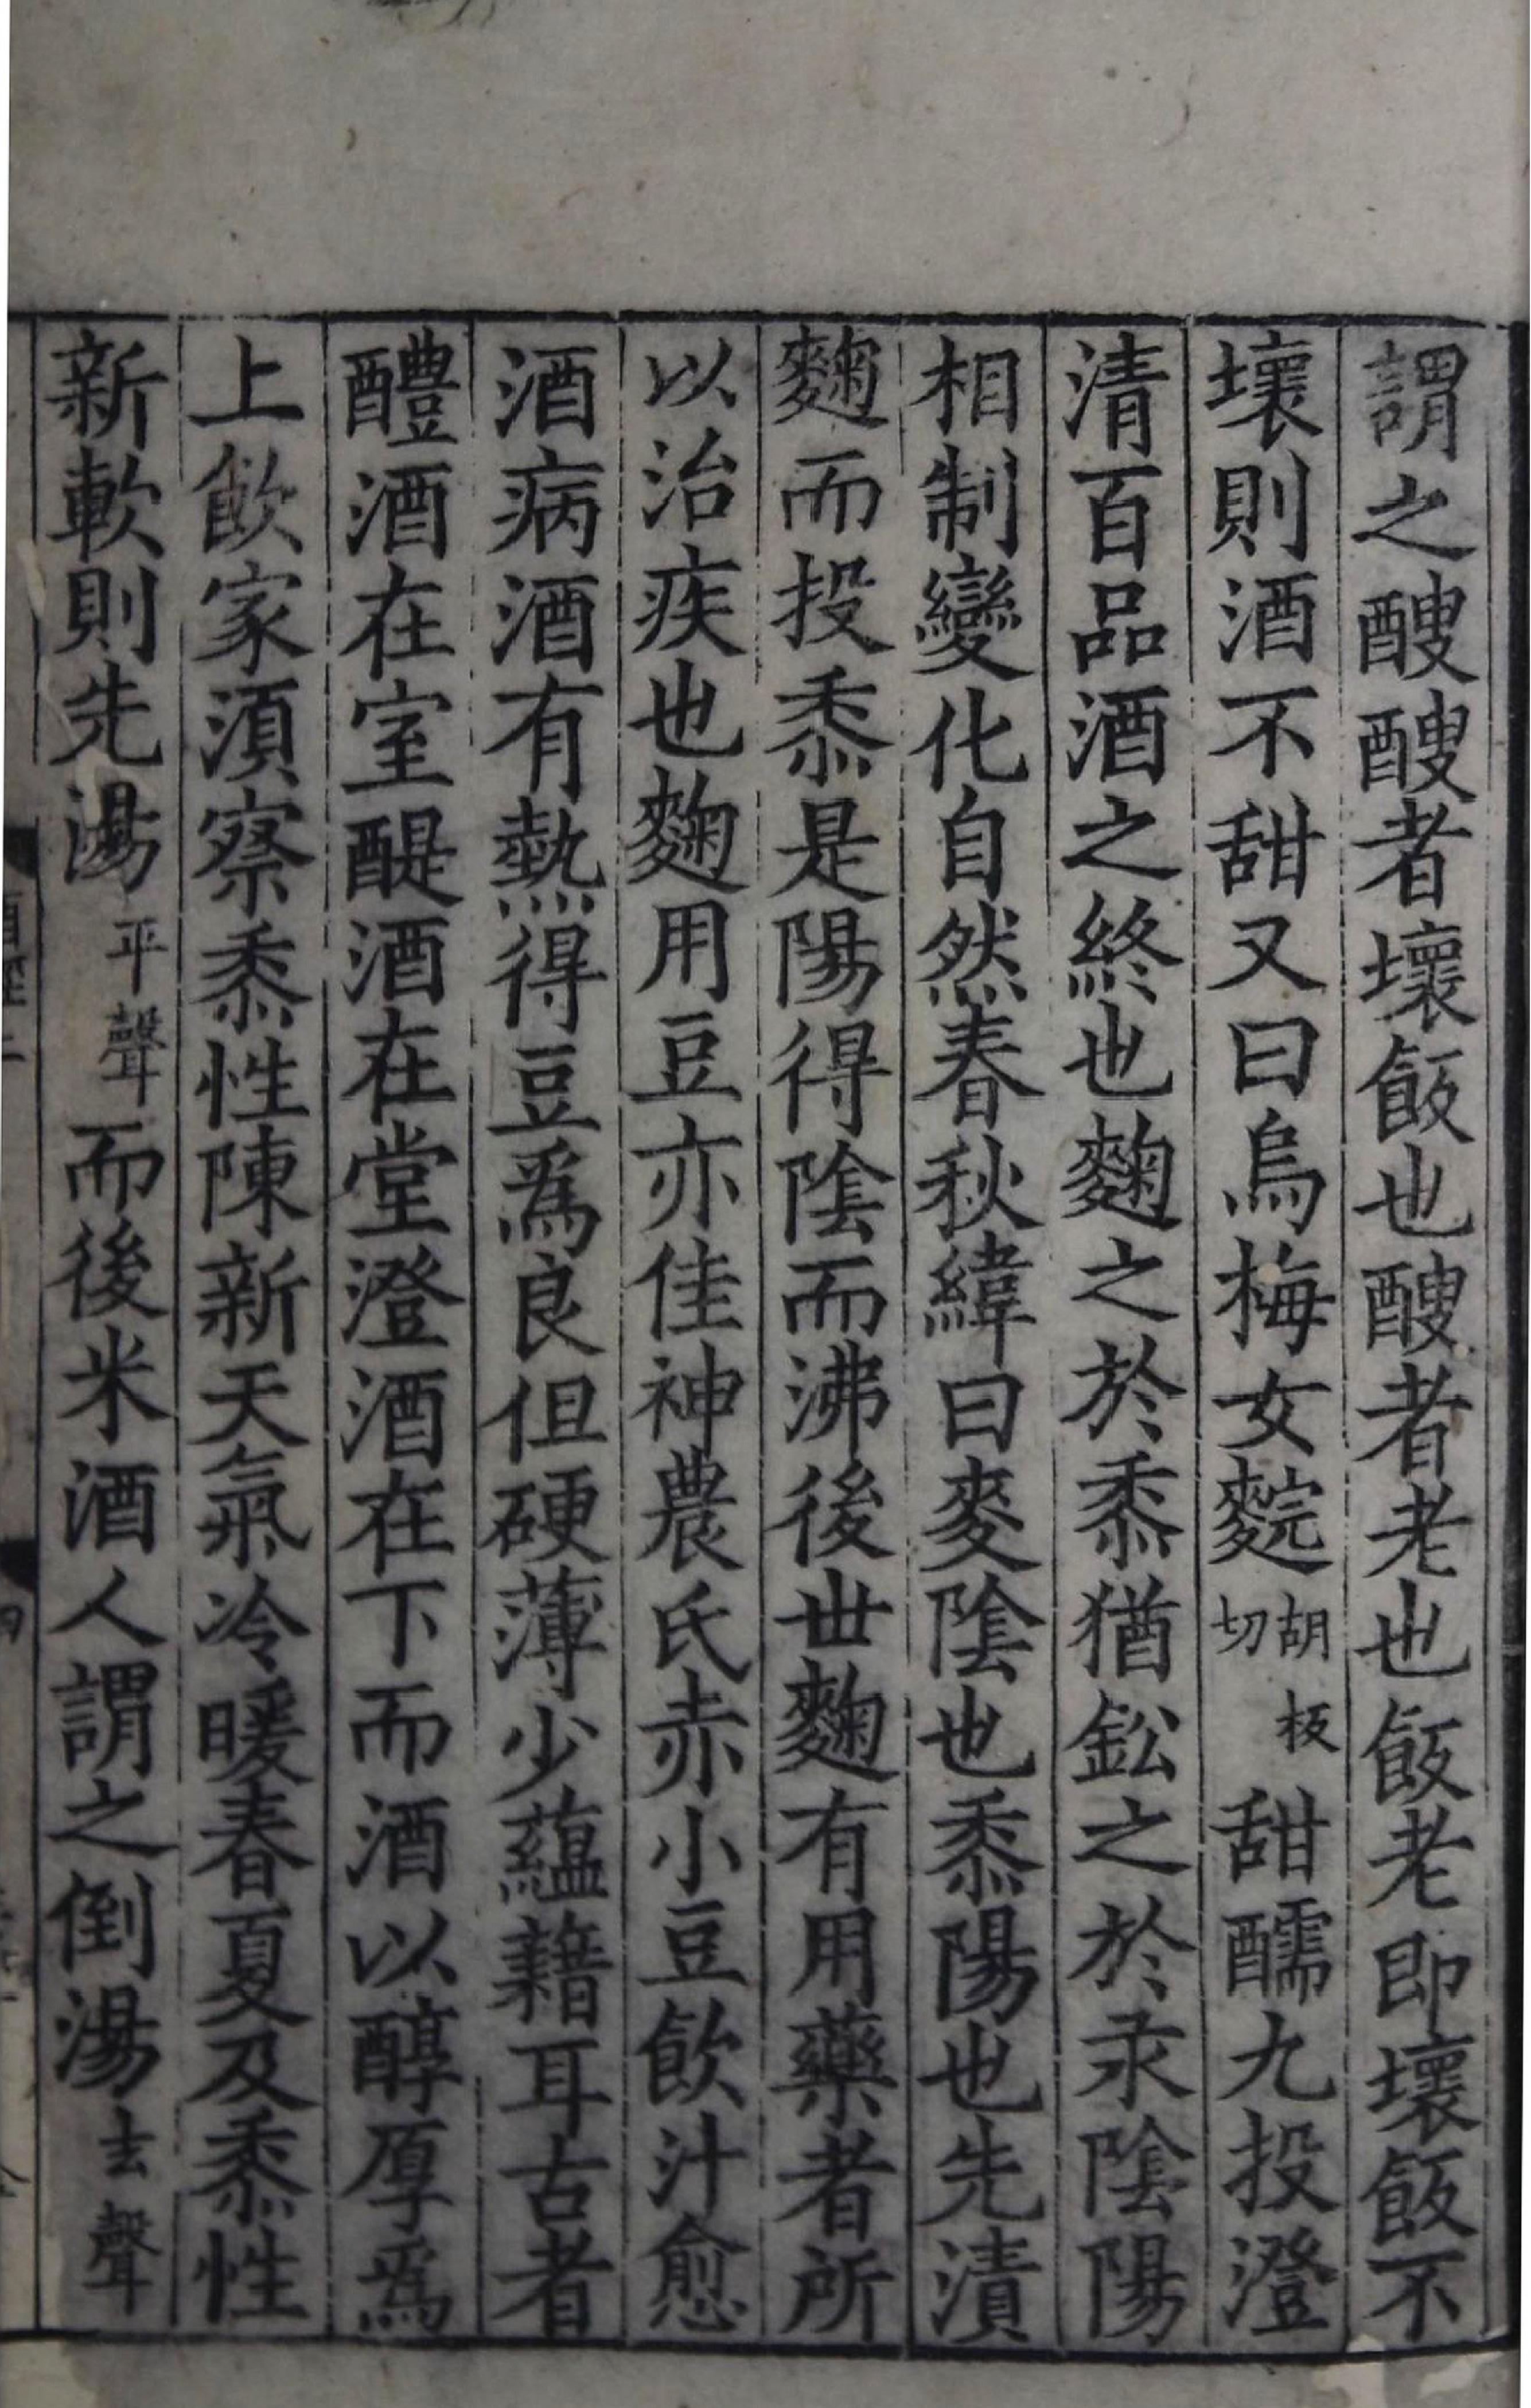 謂之醙醙者壞飯也醙者老也飯老即壞飯不
壞則酒不甜又曰烏梅女䴷胡板切甜醹九投澄
清百品酒之終也麴之於黍猶鈆之於汞陰陽
相制變化自然春秋緯曰麥陰也黍陽也先漬
麴而投黍是陽得陰而沸後世麴有用藥者所
以治疾也麴用豆亦佳神農氏赤小豆飲汁愈
酒病酒有熱得豆爲良但硬薄少蘊藉耳古者
醴酒在室醍酒在堂澄酒在下而酒以醇厚爲
上飲家須察黍性陳新天氣冷暖春夏及黍性
新軟則先湯平聲而後米酒人謂之倒湯去聲